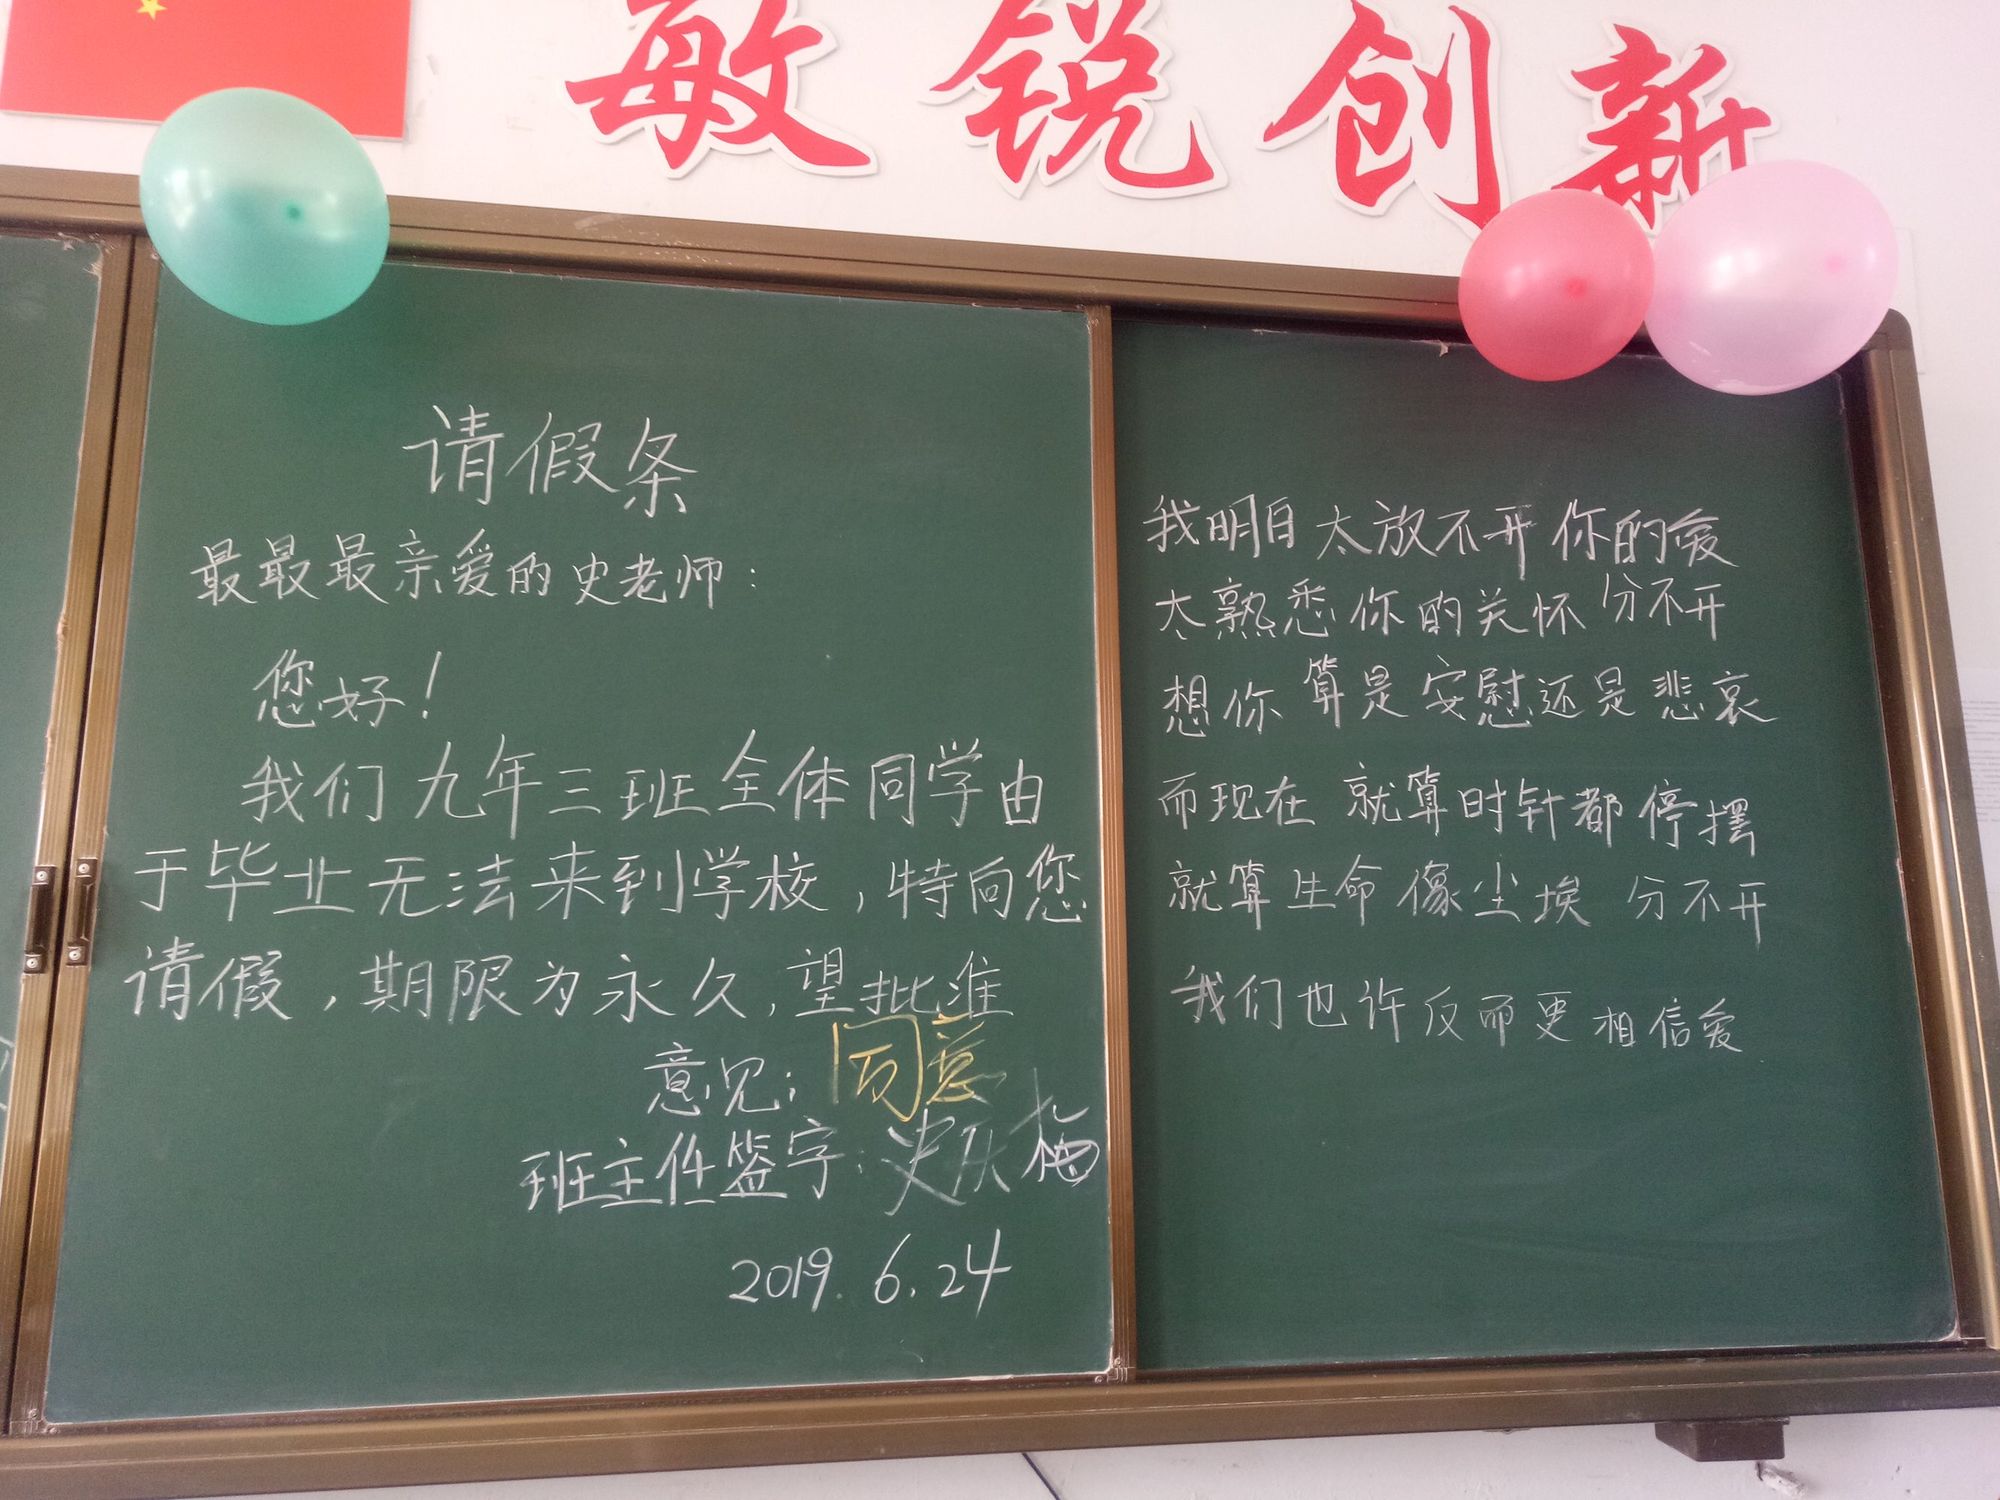 敏锐创新
请假条
最最最亲爱的史老师：
您好！
我们九年三班全体同学由
于毕业无法来到学校，特向您
请假，期限为永久，望批准
意见：同意
班主任签字：史庆梅
2019.6.24
我明目 太放不开 你的爱
太熟悉你的关怀 分不开
想你 算是安慰还是悲哀
而现在 就算时针都停摆
就算生命像尘埃 分不开
我们也许反而更相信爱